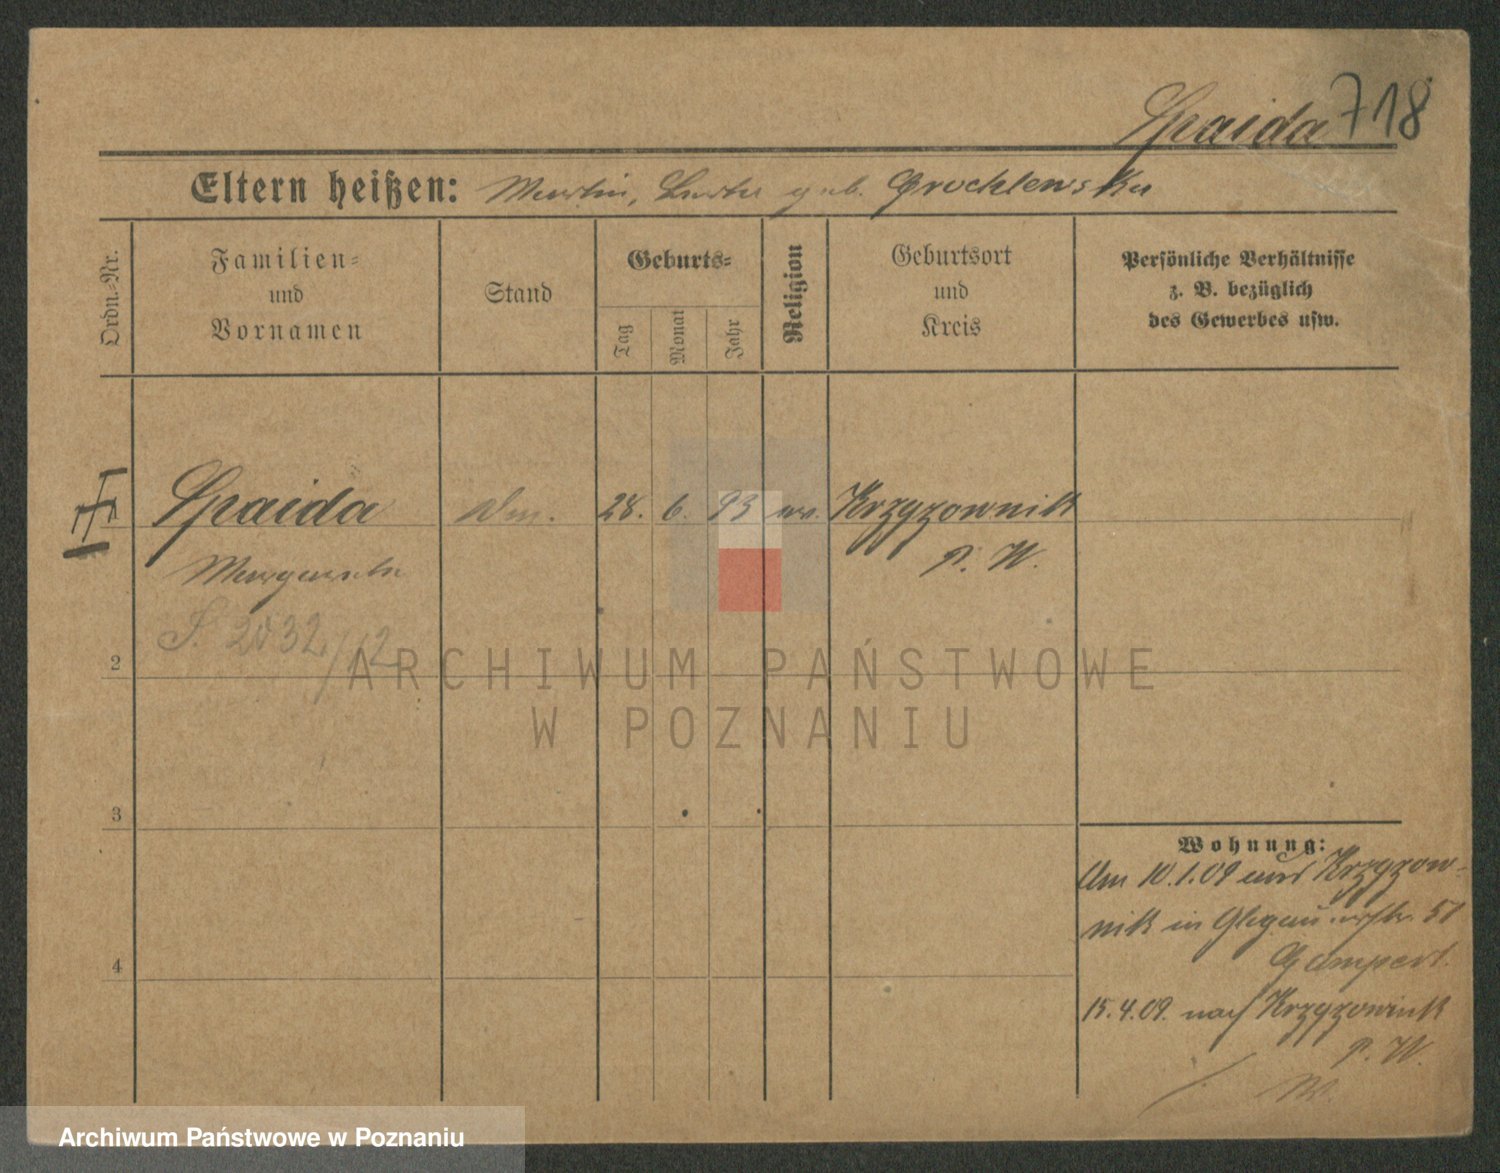 Spaida 718
Eltern heißen: Martin, geb. Grochlewska
Ordn.-Nr.
Familien-
und
Vornamen
Stand
Geburts-
Tag
Monat
Jahr
Religion
Geburtsort
und
Kreis
Persönliche Verhältnisse
z. B. bezüglich
des Gewerbes usw.
Spaida
Margarete
28. 6. 93
Krzyzownik
P. W.
S. 2032/12
2
3
4
ARCHIWUM PAŃSTWOWE
W POZNANIU
Wohnung:
Am 10.1.09 aus Krzyzow-
nik in Glogauerstr. 51
Gumpert.
15.4.09. nach Krzyzownik
P. W.
Archiwum Państwowe w Poznaniu